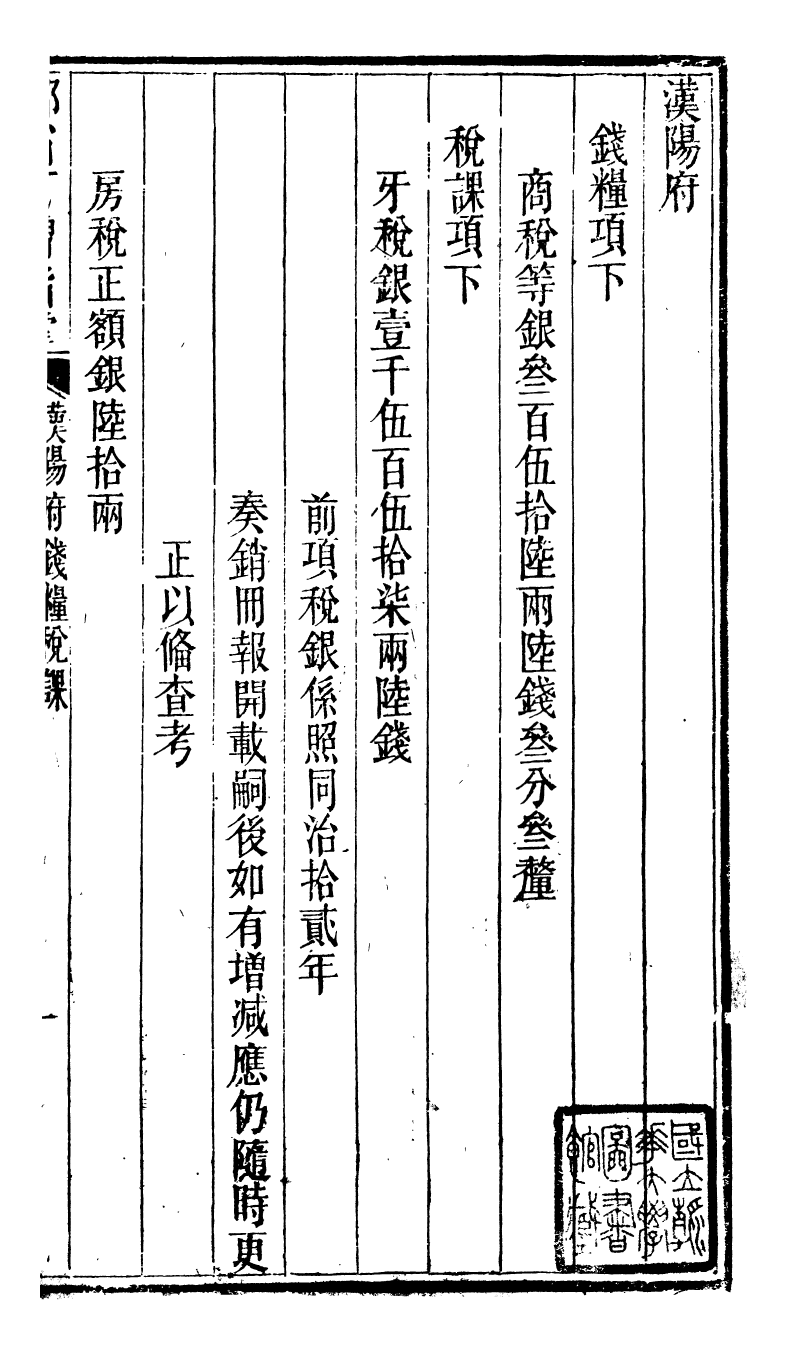 漢陽府
錢糧項下
商稅等銀叄百伍拾陸兩陸錢叄分叄釐
稅課項下
牙稅銀壹千伍百伍拾柒兩陸錢
前項稅銀係照同治拾貳年
奏銷冊報開載嗣後如有增減應仍隨時更
正以備查考
房稅正額銀陸拾兩
漢陽府錢糧稅課
一
國立清
華大學
圖書
館藏